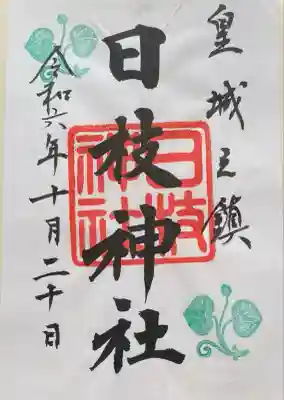 皇城之鎮
日枝神社
令和六年十月二十日
日枝
神社